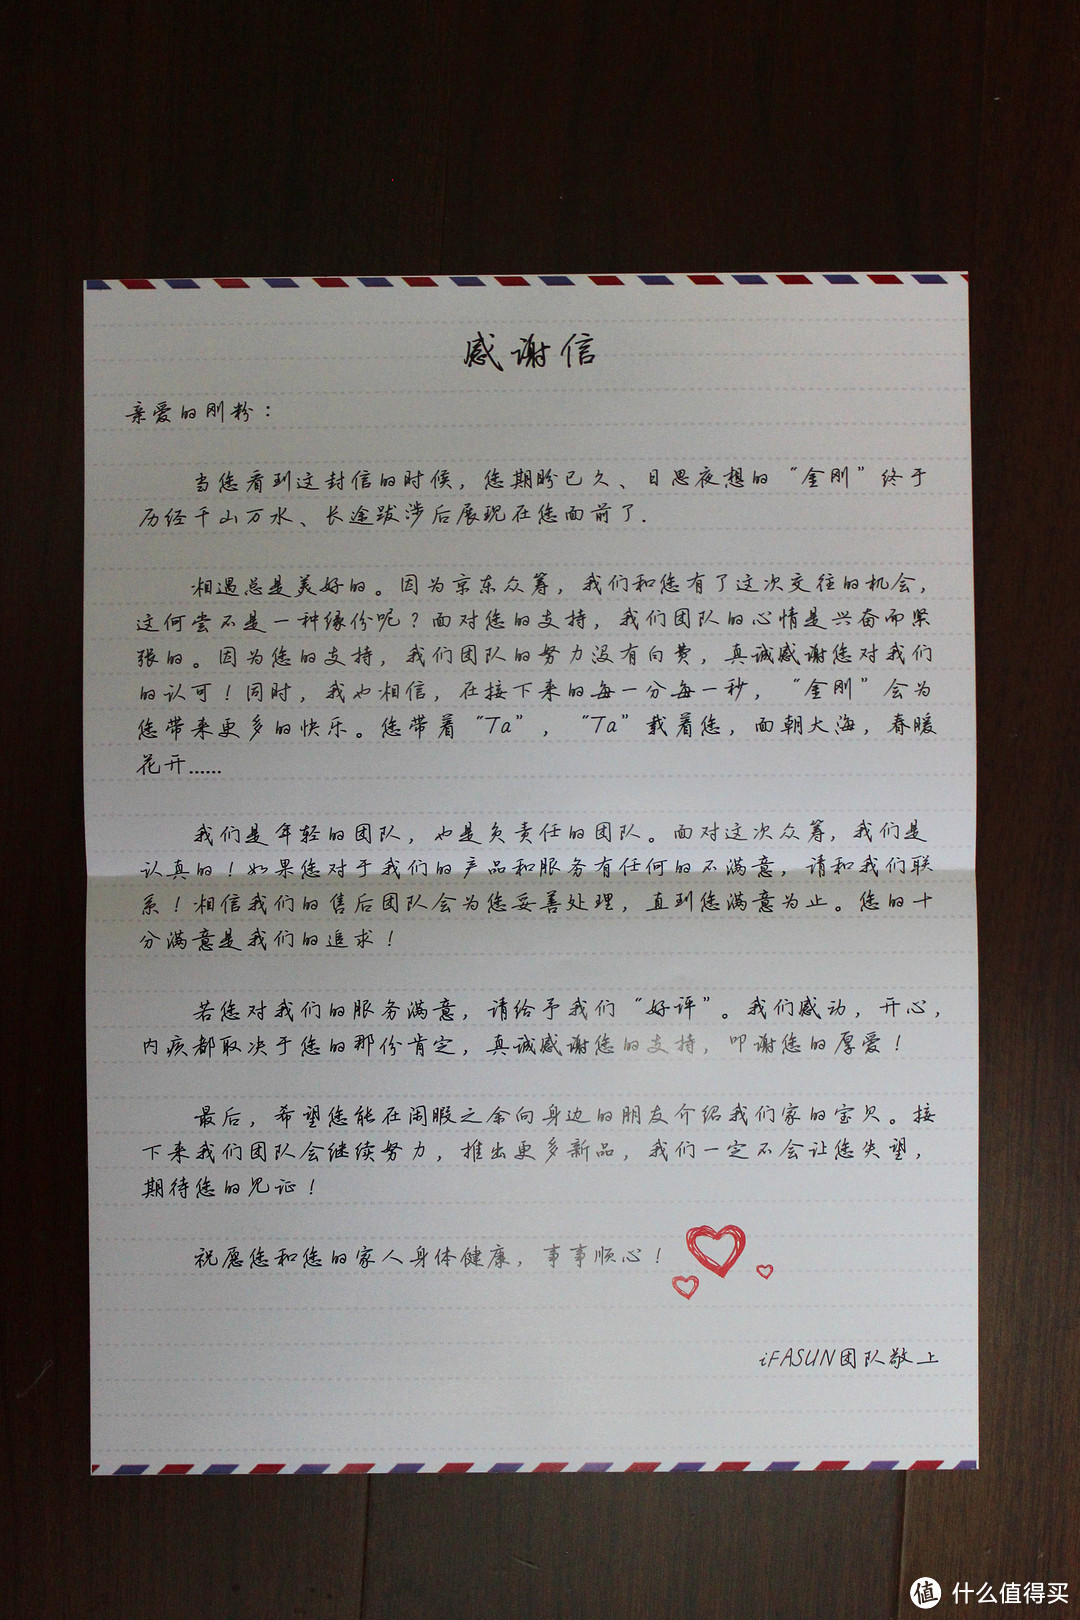 感谢信
亲爱的刚粉：
当您看到这封信的时候，您期盼已久、日思夜想的“金刚”终于
历经千山万水、长途跋涉后展现在您面前了．
相遇总是美好的。因为京东众筹，我们和您有了这次交往的机会，
这何尝不是一种缘份呢？面对您的支持，我们团队的心情是兴奋而紧
张的。因为您的支持，我们团队的努力没有白费，真诚感谢您对我们
的认可！同时，我也相信，在接下来的每一分每一秒，“金刚”会为
您带来更多的快乐。您带着“Ta”，“Ta”载着您，面朝大海，春暖
花开......
我们是年轻的团队，也是负责任的团队。面对这次众筹，我们是
认真的！如果您对于我们的产品和服务有任何的不满意，请和我们联
系！相信我们的售后团队会为您妥善处理，直到您满意为止。您的十
分满意是我们的追求！
若您对我们的服务满意，请给予我们“好评”。我们感动，开心，
内疚都取决于您的那份肯定，真诚感谢您的支持，叩谢您的厚爱！
最后，希望您能在闲暇之余向身边的朋友介绍我们家的宝贝。接
下来我们团队会继续努力，推出更多新品，我们一定不会让您失望，
期待您的见证！
祝愿您和您的家人身体健康，事事顺心！
iFASUN团队敬上
值 什么值得买